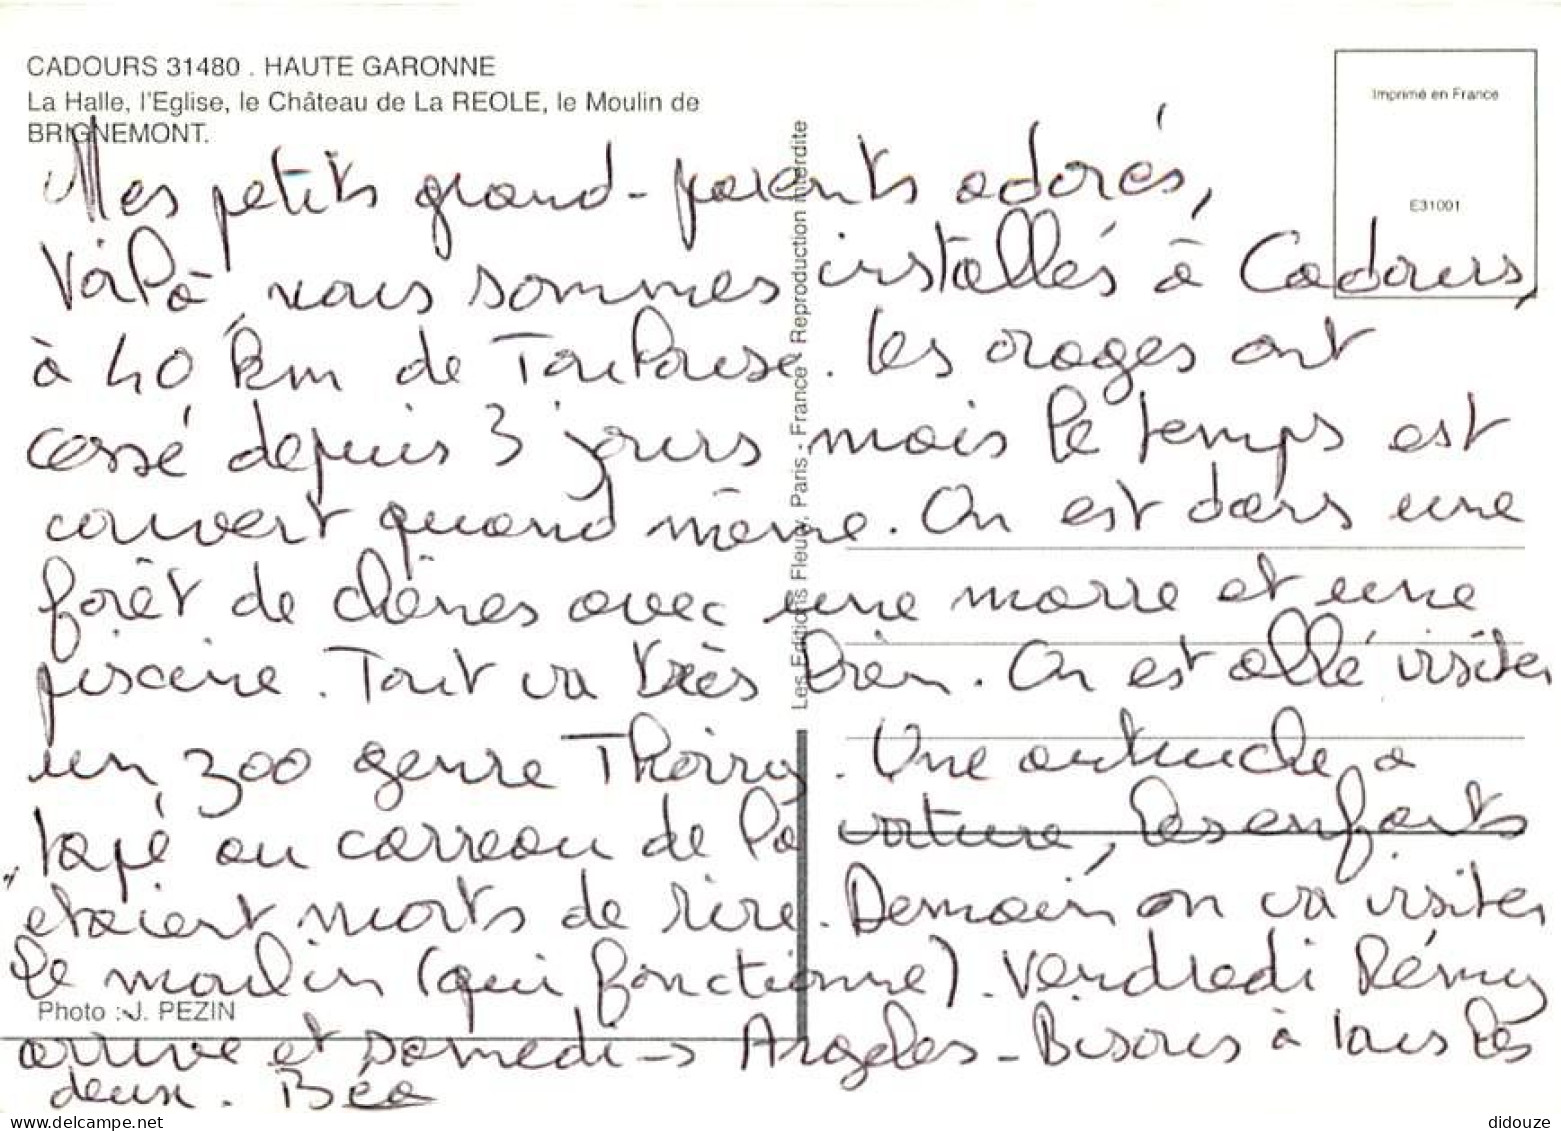 CADOURS 31480 . HAUTE GARONNE
La Halle, l'Eglise, le Château de La REOLE, le Moulin de
BRIGNEMONT.
Imprimé en France
E31001
Les Editions Fleury. Paris - France - Reproduction interdite
Mes petits grand-parents adorés,
Voilà, nous sommes installés à Cadours,
à 40 km de Toulouse. Les orages ont
cessé depuis 3 jours mais le temps est
couvert quand même. On est dans une
forêt de chênes avec une marre et une
piscine. Tout va très bien. On est allé visiter
un zoo genre Thoiry. Une autruche a
tapé au carreau de la voiture, les enfants
etaient morts de rire. Demain on va visiter
le moulin (qui fonctionne). Vendredi Rémy
arrive et samedi → Argeles - Bisous à tous les
deux. Béa
Photo : J. PEZIN
delcampe.net
didouze